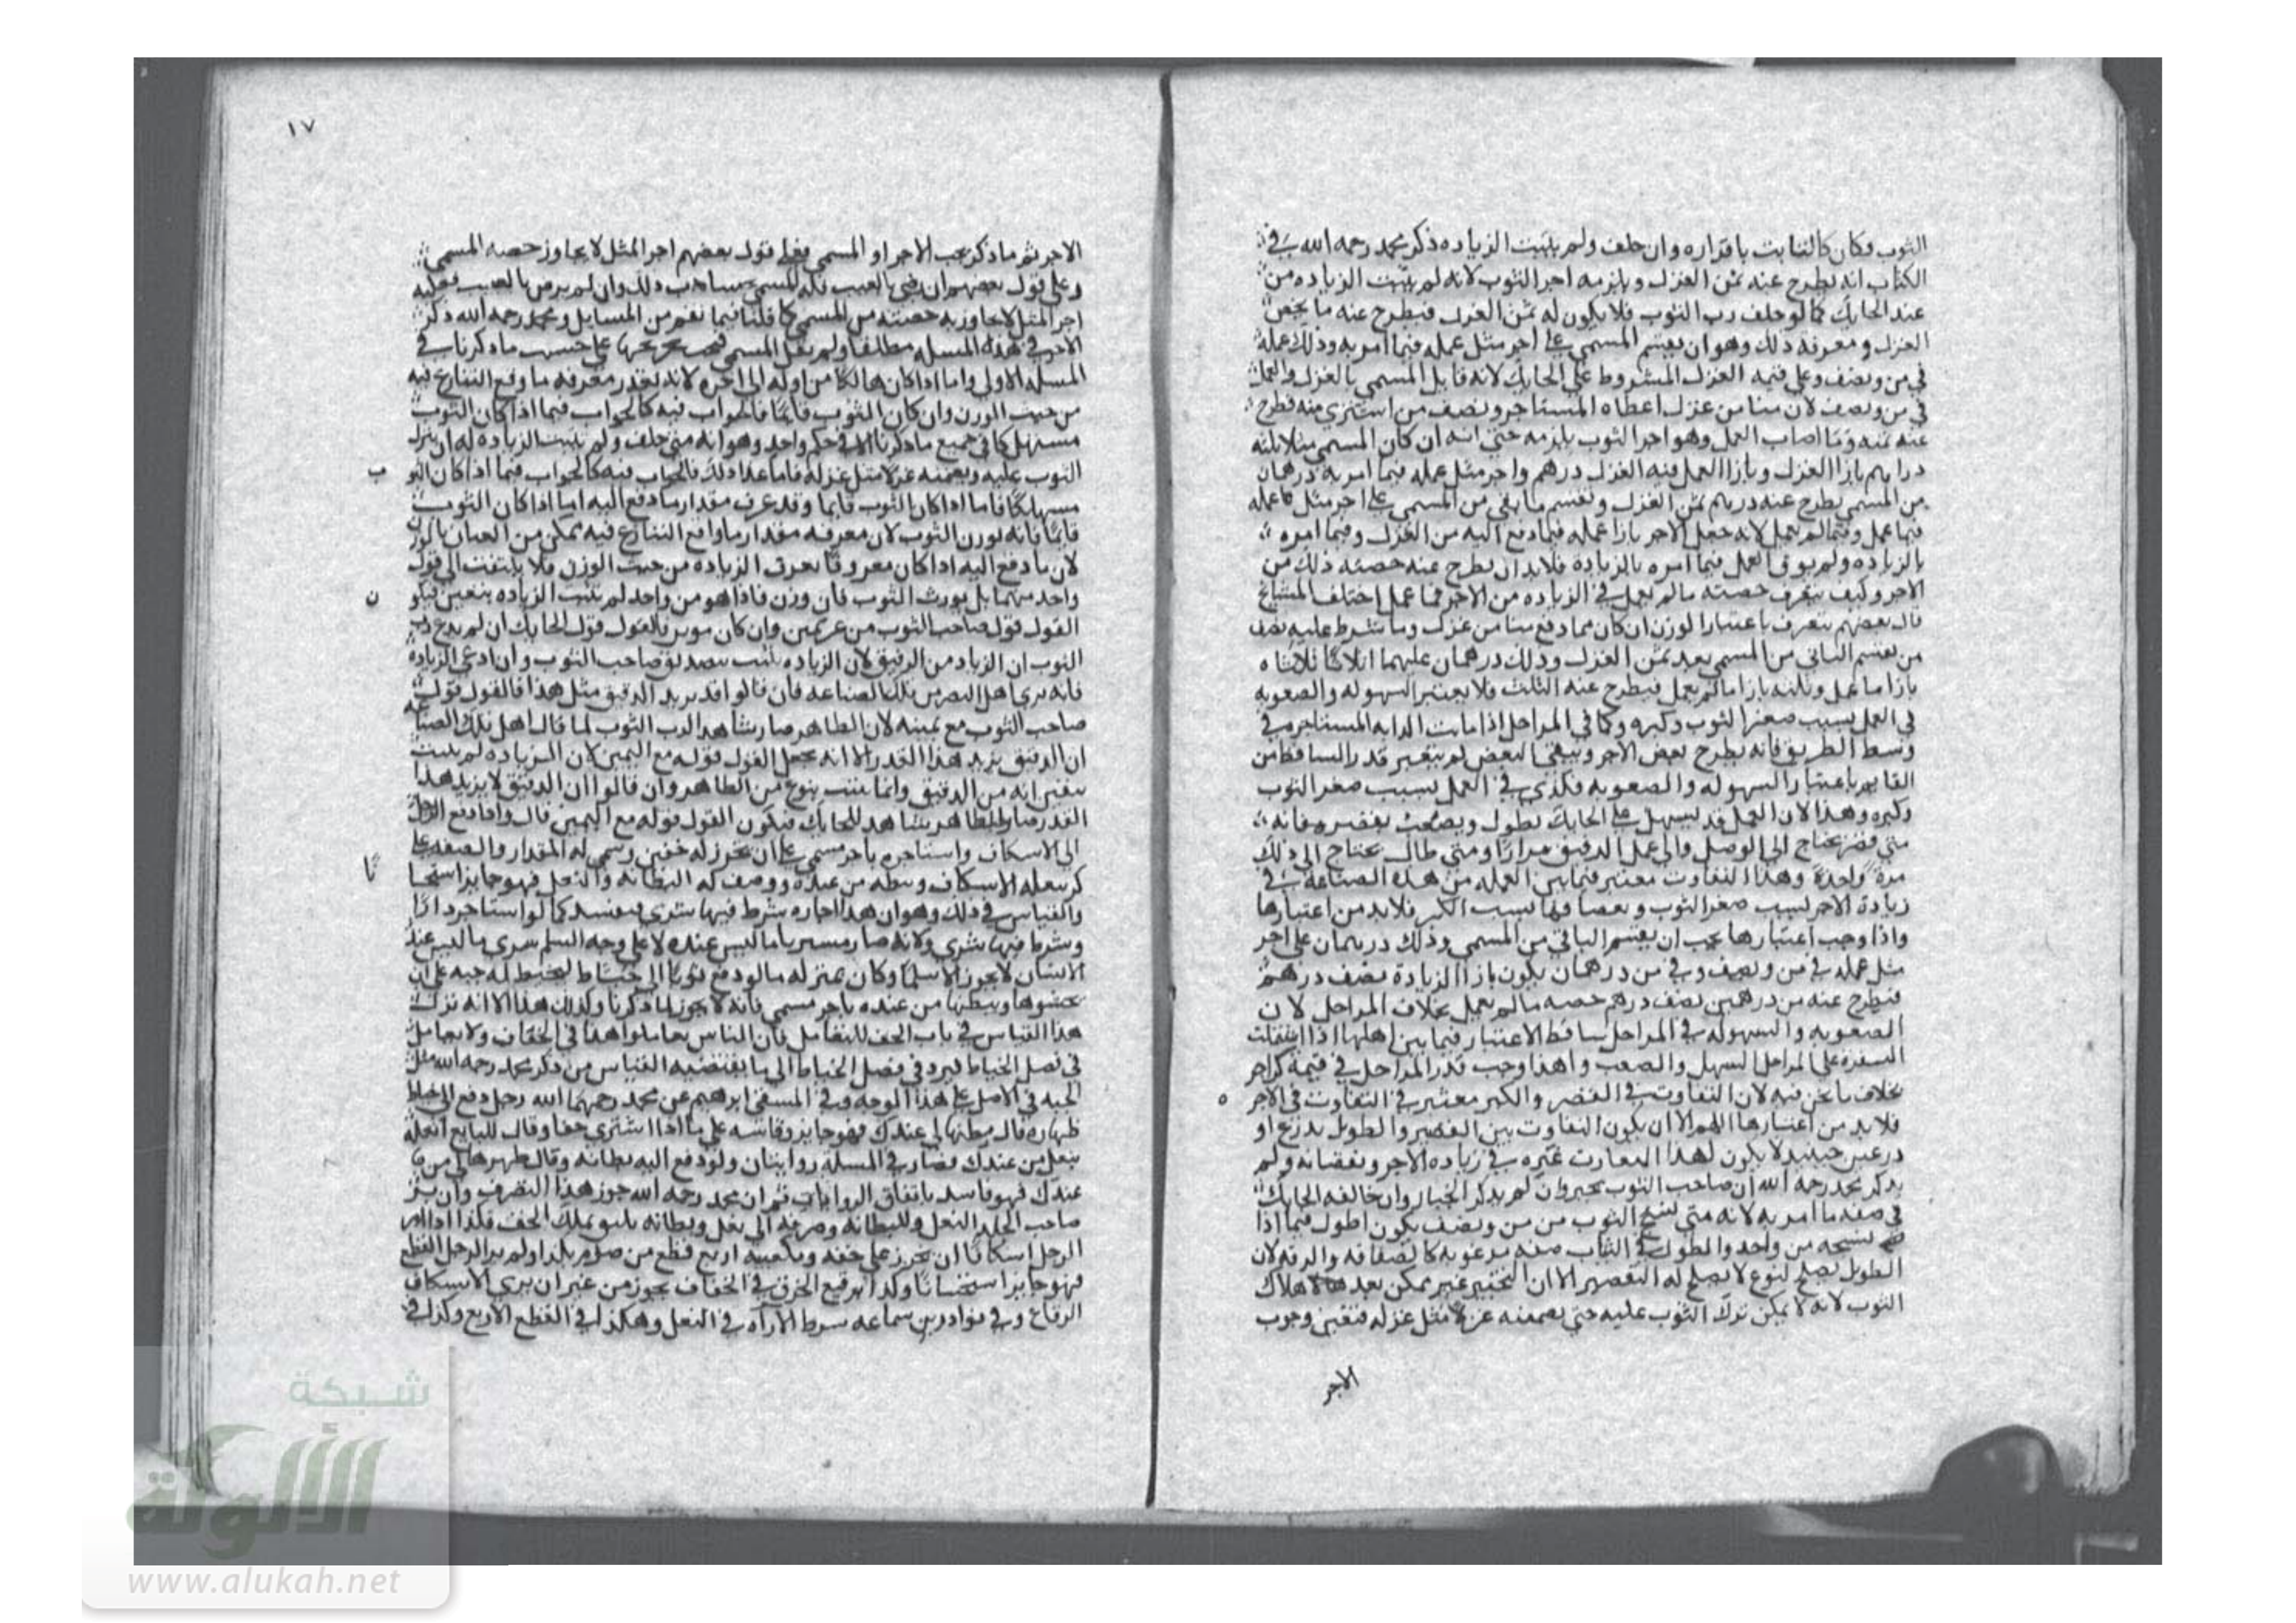 الثوب فكان كالثابت باقراره وان حلف ولم يثبت الزياده ذكر محمد رحمه الله في
الكتاب انه يطرح عنه ثمن الغزل ويلزمه اجر الثوب لانه لم يثبت الزياده من
عند الحايك كما لو حلف رب الثوب فلا يكون له ثمن الغزل فيطرح عنه ما يخص
الغزل ومعرفه ذلك وهو ان يقسم المسمي علي اجر مثل عمله فيما امر به وذلك عمله
في من ونصف وعلي قيمه الغزل المشروط علي الحايك لانه قابل المسمي بالغزل والعمل
في من ونصف لان منا من غزل اعطاه المستاجر ونصف من اشتري منه فطرح
عنه ثمنه وما اصاب العمل وهو اجر الثوب يلزمه حتي انه ان كان المسمي مثلا ثلثه
دراهم بازا الغزل وبازا العمل قيمه الغزل درهم واجر مثل عمله فيما امر به درهمان
من المسمي يطرح عنه درهم ثمن الغزل ونقسم ما بقي من المسمي علي اجر مثل ما عمله
فيما عمل وفيما لم يعمل لانه جعل الاجر بازا عمله فيما دفع اليه من الغزل وفيما امره
بالزياده ولم يوف العمل فيما امره بالزيادة فلابد ان يطرح عنه حصته ذلك من
الاجر وكيف يتعرف حصته ما لم يعمل في الزياده من الاجر فما عمل اختلف المشايخ
قال بعضهم يتعرف باعتبار الوزن ان كان مما دفع منا من غزل وما شرط عليه نصف
من نقسم الباقي من المسمي بعد ثمن الغزل وذلك درهمان عليهما اثلاثا ثلاثاه
بازا ما عمل وثلثه بازا ما لم يعمل فيطرح عنه الثلث فلا يعتبر السهوله والصعوبه
في العمل بسبب صغر الثوب وكبره وكما في المراحل اذا ماتت الدابه المستاجره في
وسط الطريق فانه يطرح بعض الاجر ويبقي البعض لم يعتبر قدر الساقط من
القايم باعتبار السهوله والصعوبه فكذي في العمل بسبب صغر الثوب
وكبره وهذا لان العمل قد يسهل علي الحايك بطول ويصعب بقصره فانه
متي قصر يحتاج الي الوصل والي عمل الدقيق مرارا ومتي طال يحتاج الي ذلك
مرة واحدة وهذا التفاوت معتبر فيما بين العمله من هذه الصناعة في
زيادة الاجر لسبب صغر الثوب ونقصانها بسبب الكبر فلابد من اعتبارها
واذا وجب اعتبارها يجب ان يقسم الباقي من المسمي وذلك درهمان علي اجر
مثل عمله في من ونصف وفي من درهمان يكون بازا الزيادة نصف درهم
فيطرح عنه من درهمين نصف درهم حصه ما لم يعمل بخلاف المراحل لان
الصعوبه والسهوله في المراحل ساقط الاعتبار فيما بين اهلها اذا اشتملت
السفره علي المراحل السهل والصعب ولهذا وجب قدر المراحل في قيمة كراجر
بخلاف ما نحن فيه لان التفاوت في القصر والكبر معتبر في التفاوت في الاجر
فلابد من اعتبارها اللهم الا ان يكون التفاوت بين القصير والطويل بذرع او
ذرعين حينيذ لا يكون لهذا التفاوت عبره في زياده الاجر ونقصانه ولم
يذكر محمد رحمه الله ان صاحب الثوب يخير وان لم يذكر الخيار وان خالفه الحايك
في صفه ما امر به لانه متي نسج الثوب من من ونصف يكون اطول فيما اذا
نسجه من واحد والطول في الثياب صفه مرغوبه كالصفاقه والرقه لان
الطويل يصلح لنوع لا يصلح له القصير الا ان التخيير غير ممكن بعد هلاك
الثوب لانه لا يمكن ترك الثوب عليه حتي يضمنه غزلا مثل غزله فتعين وجوب
الاجر
١٧
الاجر ثم ما ذكر يجب الاجر او المسمي فعلي قول بعضهم اجر المثل لا يجاوز حصه المسمي
وعلي قول بعضهم ان رضي بالعيب فله المسمي وان لم يرض بالعيب فعليه
اجر المثل لا يجاوز به حصته من المسمي كما قلنا فيما تقدم من المسايل ومحمد رحمه الله ذكر
الاجر في هذه المسله مطلقا ولم يقل المسمي فيجب تخريجها علي حسب ما ذكرنا في
المسله الاولي واما اذا كان هالكا من اوله الي اخره لانه تعذر معرفه ما وقع التنازع فيه
من حيث الوزن وان كان الثوب قايما فالجواب فيه كالجواب فيما اذا كان الثوب
مستهلكا في جميع ما ذكرنا الا في حكم واحد وهو انه متي حلف ولم يثبت الزياده له ان يترك
الثوب عليه ويضمنه غزلا مثل غزله فاما عدا ذلك فالجواب فيه كالجواب فيما اذا كان الثو
ب
مستهلكا فاما اذا كان الثوب قايما وقد عرف مقدار ما دفع اليه اما اذا كان الثوب
قايما فانه يوزن الثوب لان معرفه مقدار ما وقع التنازع فيه ممكن من العيان بالوزن
لان ما دفع اليه اذا كان معروفا يعرف الزياده من حيث الوزن فلا يلتفت الي قول
واحد منهما بل يوزن الثوب فان وزن فاذا هو من واحد لم يثبت الزياده بتعين فيكو
ن
القول قول صاحب الثوب من غير يمين وان كان منوين فالقول قول الحايك ان لم يدع رب
الثوب ان الزياد من الدقيق لان الزياده تثبت بتصديق صاحب الثوب وان ادعي الزياده
فانه يري اهل البصر من تلك الصناعه فان قالوا قد يزيد الدقيق مثل هذا فالقول قول
صاحب الثوب مع يمينه لان الظاهر صار شاهد الرب الثوب لما قال اهل تلك الصناعه
ان الدقيق يزيد هذا القدر الا انه يجعل القول قوله مع اليمين لان الزياده لم يثبت
بيقين انه من الدقيق وانما يثبت بنوع من الظاهر وان قالوا ان الدقيق لا يزيد هذا
القدر صار الظاهر شاهد للحايك فيكون القول قوله مع اليمين قال واذا دفع الرجل
الي الاسكاف واستاجره باجر مسمي علي ان يخرز له خفين وسمي له المقدار والصفه علي
ان ينعله الاسكاف ويبطنه من عنده ووصف له البطانه والنعل فهو جايز استحسا
نا
والقياس في ذلك وهو ان هذا اجاره شرط فيها شري يفسد كما لو استاجر دارا
وشرط فيها شري ولانه صار مشتريا ما ليس عنده لا علي وجه السلم شري ما ليس عند
الانسان لا يجوز الا سلما وكان بمنزله ما لو دفع ثوبا الي خياط ليخيط له جبه علي ان
يحشوها ويبطنها من عنده باجر مسمي فانه لا يجوز لما ذكرنا وكذلك هذا الا انه ترك
هذا القياس في باب الخف للتعامل فان الناس تعاملوا هذا في الخفاف ولا تعامل
في فصل الخياط فيرد في فصل الخياط الي ما يقتضيه القياس من ذكر محمد رحمه الله مسله
الجبه في الاصل علي هذا الوجه وفي المنتقي ابرهيم عن محمد رحمهما الله رجل دفع الي خياط
ظهاره قال بطنها لي عندك فهو جايز وقاسه علي ما اذا اشتري خفا وقال للبايع انعله
بنعل من عندك فصار في المسلة روايتان ولو دفع اليه بطانه وقال ظهرها لي من
عندك فهو فاسد باتفاق الروايات ثم ان محمد رحمه الله جوز هذا التصرف وان لم ير
صاحب الجلد النعل والبطانه وصرفه الي نعل وبطانه يليق بملك الخف فكذا اذا امر
الرجل اسكافا ان يخرز علي خفه ومكعبيه اربع قطع من صرم بكذا ولم ير الرجل القطع
فهو جايز استحسانا وكذا ترقيع الخرق في الخفاف يجوز من غير ان يري الاسكاف
الرقاع وفي نوادر بن سماعه شرط الاراه في النعل وهكذا في القطع الاربع وكذا في
شبكة
الألوكة
www.alukah.net